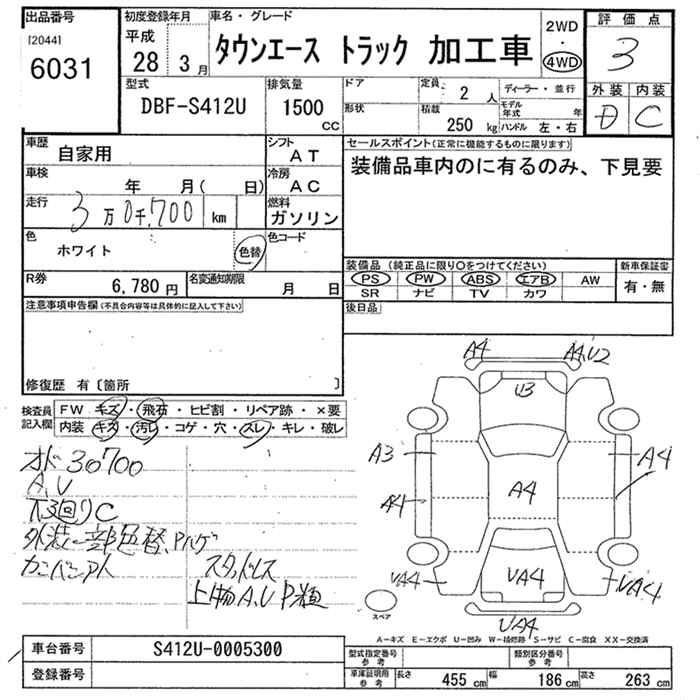 出品番号 [2044] 6031
初度登録年月 平成 28 3月
車名・グレード タウンエース トラック 加工車
2WD ・ 4WD
評価点 3
外装 内装
D C
型式 DBF-S412U
排気量 1500 CC
ドア 形状
定員 2 人
積載 250 kg
ディーラー・並行
モデル年式 年
ハンドル 左・右
車歴 自家用
シフト AT
車検 年 月( 日)
冷房 AC
走行 3万0千,700 km
燃料 ガソリン
色 ホワイト 色替
色コード
R券 6,780円
名変通知期限 月 日
セールスポイント(正常に機能するものに限ります)
装備品車内のに有るのみ、下見要
装備品 (純正品に限り○をつけてください)
PS PW ABS エアB AW
SR ナビ TV カワ
新車保証書 有・無
後日品
注意事項申告欄(不具合内容等は具体的に記入して下さい)
修復歴 有〔箇所 〕
検査員記入欄
FW キズ・飛石・ヒビ割・リペア跡・×要
内装 キズ・汚レ・コゲ・穴・スレ・キレ・破レ
オド30700
A,U
下回りC
外装一部色替、Pハゲ
スタッドレス
上物A,U P粗
A4 A4,U2
U3
A3 A4
A4 A4
UA4 UA4 UA4
UA4
スペア
A-キズ E-エクボ U-凹み W-補修跡 S-サビ C-腐食 XX-交換済
車台番号 S412U-0005300
登録番号
型式指定番号 参考
類別区分番号 参考
車庫証明用 参考 長さ 455 cm 幅 186 cm 高さ 263 cm